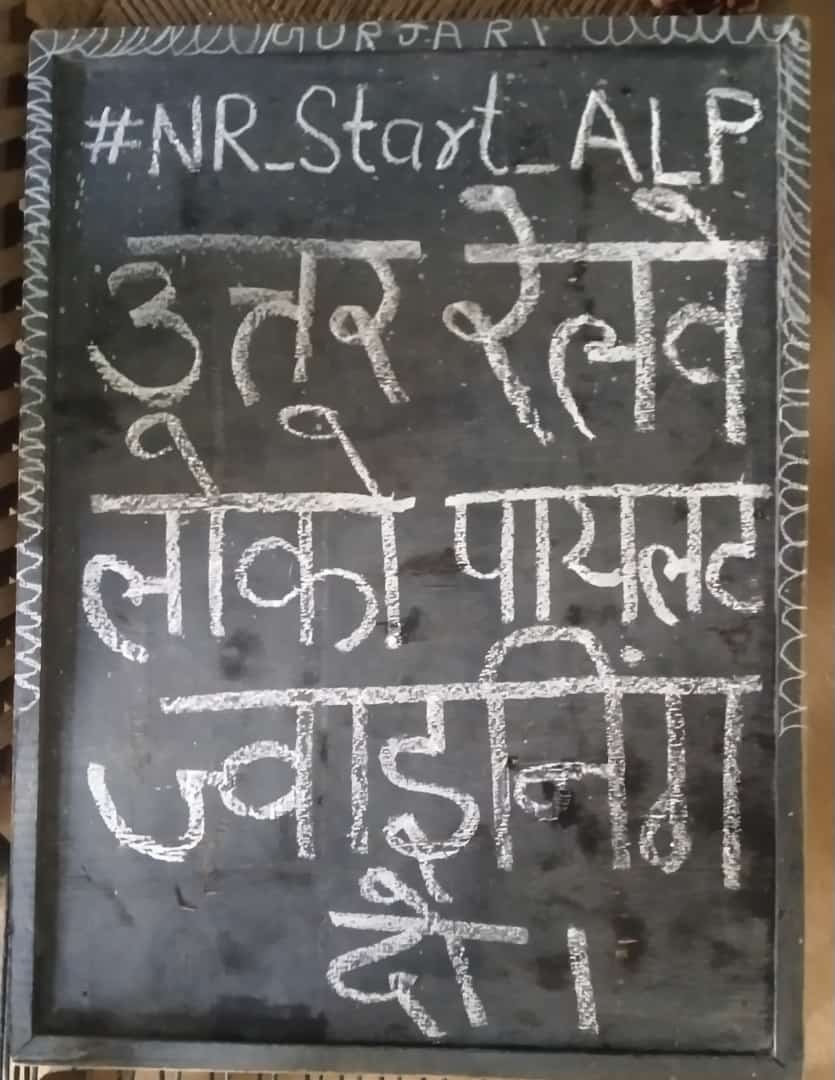 GURJAR
#NR_Start_ALP
उत्तर रेलवे
लोको पायलट
ज्वाइनिंग
दो।